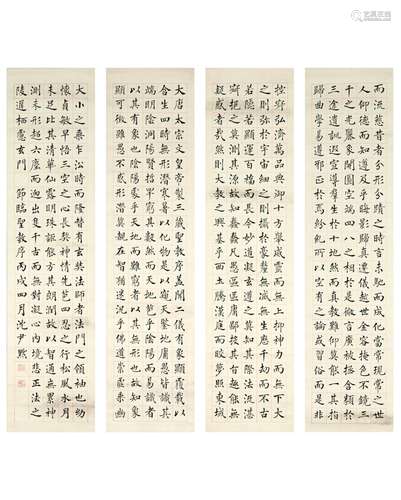 大唐太宗文皇帝製三藏聖教序蓋聞二儀有象顯覆載以
含生四時無形潛寒暑以化物是以窺天鑒地庸愚皆識其
端明陰洞陽賢哲罕窮其數然而天地苞乎陰陽而易識者
以其有象也陰陽處乎天地而難窮者以其無形也故知象
顯可徵雖愚不惑形潛莫覩在智猶迷況乎佛道崇虛乘幽
控寂弘濟萬品典御十方舉威靈而無上抑神力而無下大
之則彌於宇宙細之則攝於豪釐無滅無生歷千劫而不古
若隱若顯運百福而長今妙道凝玄遵之莫知其際法流湛
寂挹之莫測其源故知蠢蠢凡愚區區庸鄙投其旨趣能無
疑惑者哉然則大教之興基乎西土騰漢庭而皎夢照東域
而流慈昔者分形分跡之時言未馳而成化當常現常之世
人仰德而知遵及乎晦影歸真遷儀越世金容掩色不鏡三
千之光麗象開圖空端四八之相於是微言廣被拯含類於
三途遺訓遐宣導群生於十地然而真教難仰莫能一其指
歸曲學易遵邪正於焉紛糺所以空有之論或習俗而是非
大小之乘乍沿時而隆替有玄奘法師者法門之領袖也幼
懷貞敏早悟三空之心長契神情先苞四忍之行松風水月
未足比其清華仙露明珠詎能方其朗潤故以智通無累神
測未形超六塵而迥出隻千古而無對凝心內境悲正法之
陵遲栖慮玄門 節臨聖教序丙戌四月沈尹默